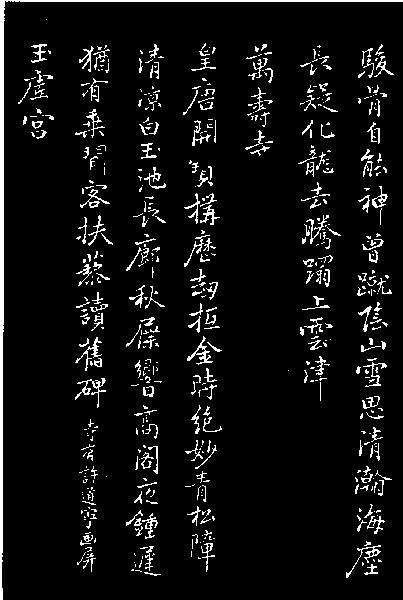 駿骨自能神曾蹴陰山雪思清瀚海塵
長疑化龍去騰躍上雲津
萬壽寺
皇唐開寶構歷劫抵金時絶妙青松障
清凉白玉池長廊秋屧響高閣夜鍾遲
猶有乗閒客扶藜讀舊碑寺有許道寧画屏
玉虛宮